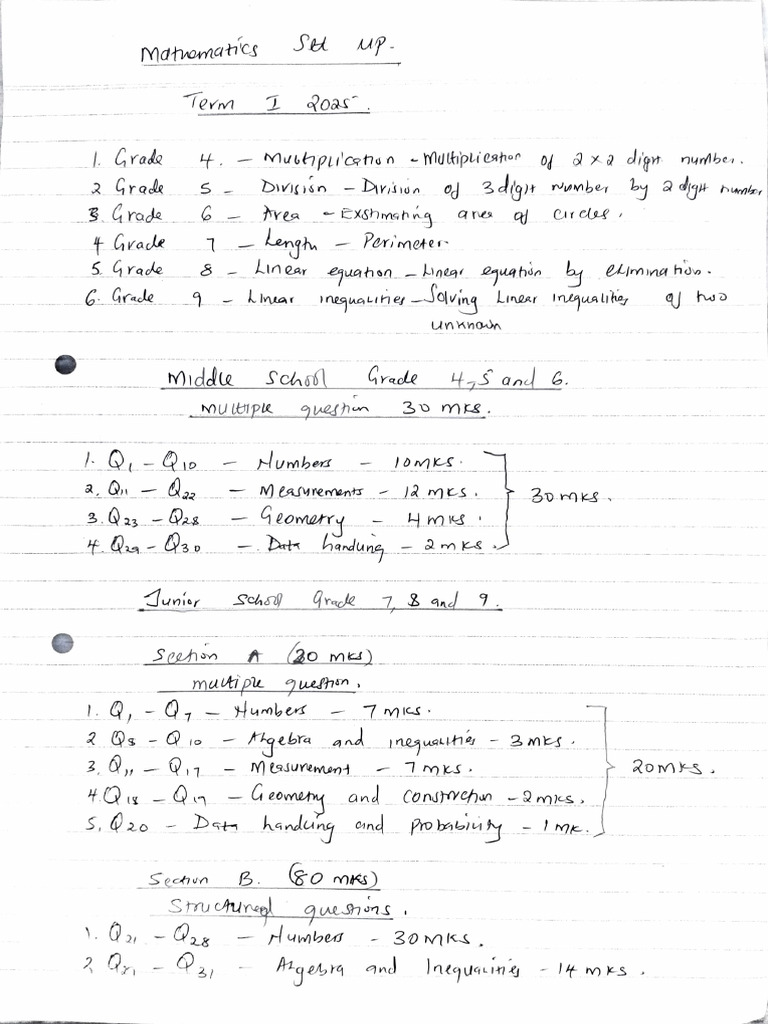 Mathematics Set up.
Term I 2025.
1. Grade 4. – Multiplication – Multiplication of 2 x 2 digit number.
2 Grade 5 – Division – Division of 3 digit number by 2 digit number
3 Grade 6 – Area – Exstimating area of circles.
4 Grade 7 – Length – Perimeter.
5. Grade 8 – Linear equation – Linear equation by elimination.
6. Grade 9 – Linear inequalities – Solving Linear inequalities of two
unknown
Middle School Grade 4, 5 and 6.
multiple question 30 mks.
1. Q1 – Q10 – Numbers – 10 mks.
2. Q11 – Q22 – Measurements – 12 mks.
3. Q23 – Q28 – Geometry – 4 mks.
4. Q29 – Q30 – Data handling – 2 mks.
30 mks.
Junior School Grade 7, 8 and 9.
Section A (20 mks)
multiple question.
1. Q1 – Q7 – Numbers – 7 mks.
2 Q8 – Q10 – Algebra and inequalities – 3 mks.
3. Q11 – Q17 – Measurement – 7 mks.
4. Q18 – Q19 – Geometry and construction – 2 mks.
5. Q20 – Data handling and probability – 1 mk.
20 mks.
Section B. (80 mks)
Structured questions.
1. Q21 – Q28 – Numbers – 30 mks.
2 Q21 – Q31 – Algebra and Inequalities – 14 mks.